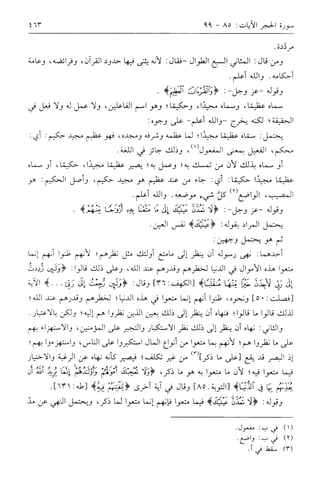 سورة الحجر الآيات: ٨٥ - ٩٩ ٤٦٣
مرددة.
ومن قال: المثاني السبع الطوال -فقال: لأنه يثنى فيها حدود القرآن، وفرائضه، وعامة
أحكامه. والله أعلم.
وقوله -عز وجل-: ﴿وَالْقُرْآنَ الْعَظِيمَ﴾.
سماه عظيمًا، وسماه مجيدًا، وحكيمًا؛ وهو اسم الفاعلين، ولا عمل له ولا فعل في
الحقيقة؛ لكنه يخرج -والله أعلم- على وجوه:
يحتمل: سماه عظيمًا مجيدًا؛ لما عظمه وشرفه ومجده، فهو عظيم مجيد حكيم: أي:
محكم، الفعيل بمعنى المفعول(١)، وذلك جائز في اللغة.
أو سماه بذلك لأن من تمسك به؛ وعمل به؛ يصير عظيمًا مجيدًا، حكيمًا، أو سماه
عظيمًا مجيدًا حكيمًا: أي: جاء من عند عظيم هو مجيد حكيم، وأصل الحكيم: هو
المصيب، الواضع(٢) كلَّ شيء موضعه. والله أعلم.
وقوله -عز وجل-: ﴿لَا تَمُدَّنَّ عَيْنَيْكَ إِلَى مَا مَتَّعْنَا بِهِ أَزْوَاجًا مِنْهُمْ﴾.
يحتمل المراد بقوله: ﴿عَيْنَيْكَ﴾ نفس العين.
ثم هو يحتمل وجهين:
أحدهما: نهى رسوله أن ينظر إلى ما متع أولئك مثل نظرهم؛ لأنهم ظنوا أنهم إنما
متعوا هذه الأموال في الدنيا لخطرهم وقدرهم عند الله، وعلى ذلك قالوا: ﴿وَلَئِنْ رُدِدْتُ
إِلَى رَبِّي لَأَجِدَنَّ خَيْرًا مِنْهَا مُنْقَلَبًا﴾ [الكهف: ٣٦] وقال: ﴿وَلَئِنْ رُجِعْتُ إِلَى رَبِّي...﴾ الآية
[فصلت: ٥٠] ونحوه، ظنوا أنهم إنما متعوا في هذه الدنيا؛ لخطرهم وقدرهم عند الله؛
لذلك قالوا ما قالوا؛ فنهاه أن ينظر إلى ذلك بعين الذين نظروا هم إليه؛ ولكن بالاعتبار.
والثاني: نهاه أن ينظر إلى ذلك نظر الاستكبار والتجبر على المؤمنين، والاستهزاء بهم
على ما نظروا هم؛ لأنهم بما متعوا من أنواع المال استكبروا على الناس، واستهزءوا بهم؛
إذ البصر قد يقع [على ما ذكر](٣) من غير تكلف؛ فيصير كأنه نهاه عن الرغبة والاختيار
فيما متعوا فيه؛ لأن ما متعوا به هو ما ذكر، ﴿وَلَا تُعْجِبْكَ أَمْوَالُهُمْ وَأَوْلَادُهُمْ إِنَّمَا يُرِيدُ اللَّهُ أَنْ
يُعَذِّبَهُمْ بِهَا فِي الدُّنْيَا﴾ [التوبة: ٨٥] وقال في آية أخرى ﴿لِنَفْتِنَهُمْ فِيهِ﴾ [طه: ١٣١].
وقوله: ﴿لَا تَمُدَّنَّ عَيْنَيْكَ﴾ فيما متعوا فإنهم إنما متعوا لما ذكر، ويحتمل النهي عن مدّ
(١) في ب: مفعول.
(٢) في ب: واضع.
(٣) سقط في أ.